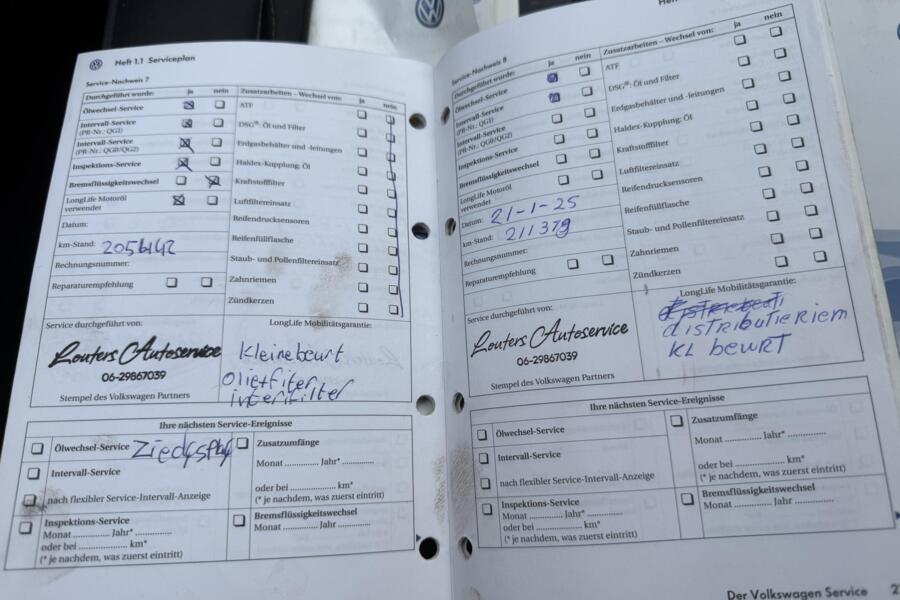 Heft 1.1 Serviceplan
Service-Nachweis 7
Durchgeführt wurde: ja nein
Ölwechsel-Service
Intervall-Service
(PR-Nr.: QG1)
Intervall-Service
(PR-Nr.: QG0/QG2)
Inspektions-Service
Bremsflüssigkeitswechsel
LongLife Motoröl
verwendet
Datum:
km-Stand: 205642
Rechnungsnummer:
Reparaturempfehlung
Zusatzarbeiten – Wechsel von: ja nein
ATF
DSG®: Öl und Filter
Erdgasbehälter und -leitungen
Haldex-Kupplung: Öl
Kraftstofffilter
Luftfiltereinsatz
Reifendrucksensoren
Reifenfüllflasche
Staub- und Pollenfiltereinsatz
Zahnriemen
Zündkerzen
Service durchgeführt von:
Louters Autoservice
06-29867039
Stempel des Volkswagen Partners
LongLife Mobilitätsgarantie:
Kleine beurt
olie+filter
Ihre nächsten Service-Ereignisse
Ölwechsel-Service
Intervall-Service
nach flexibler Service-Intervall-Anzeige
Inspektions-Service
Monat ............. Jahr* .............
oder bei .................. km*
(* je nachdem, was zuerst eintritt)
Zusatzumfänge
Monat ............ Jahr* ............
oder bei .................. km*
(* je nachdem, was zuerst eintritt)
Bremsflüssigkeitswechsel
Monat ............ Jahr ............
Service-Nachweis 8
Durchgeführt wurde: ja nein
Ölwechsel-Service
Intervall-Service
(PR-Nr.: QG1)
Intervall-Service
(PR-Nr.: QG0/QG2)
Inspektions-Service
Bremsflüssigkeitswechsel
LongLife Motoröl
verwendet
Datum: 21-1-25
km-Stand: 211379
Rechnungsnummer:
Reparaturempfehlung
Zusatzarbeiten – Wechsel von: ja nein
ATF
DSG®: Öl und Filter
Erdgasbehälter und -leitungen
Haldex-Kupplung: Öl
Kraftstofffilter
Luftfiltereinsatz
Reifendrucksensoren
Reifenfüllflasche
Staub- und Pollenfiltereinsatz
Zahnriemen
Zündkerzen
Service durchgeführt von:
Louters Autoservice
06-29867039
Stempel des Volkswagen Partners
LongLife Mobilitätsgarantie:
distributieriem
KL beurt
Ihre nächsten Service-Ereignisse
Ölwechsel-Service
Intervall-Service
nach flexibler Service-Intervall-Anzeige
Inspektions-Service
Monat ............ Jahr* ............
oder bei .................. km*
(* je nachdem, was zuerst eintritt)
Zusatzumfänge
Monat ............ Jahr* ............
oder bei .................. km*
(* je nachdem, was zuerst eintritt)
Bremsflüssigkeitswechsel
Monat ............ Jahr ............
Der Volkswagen Service